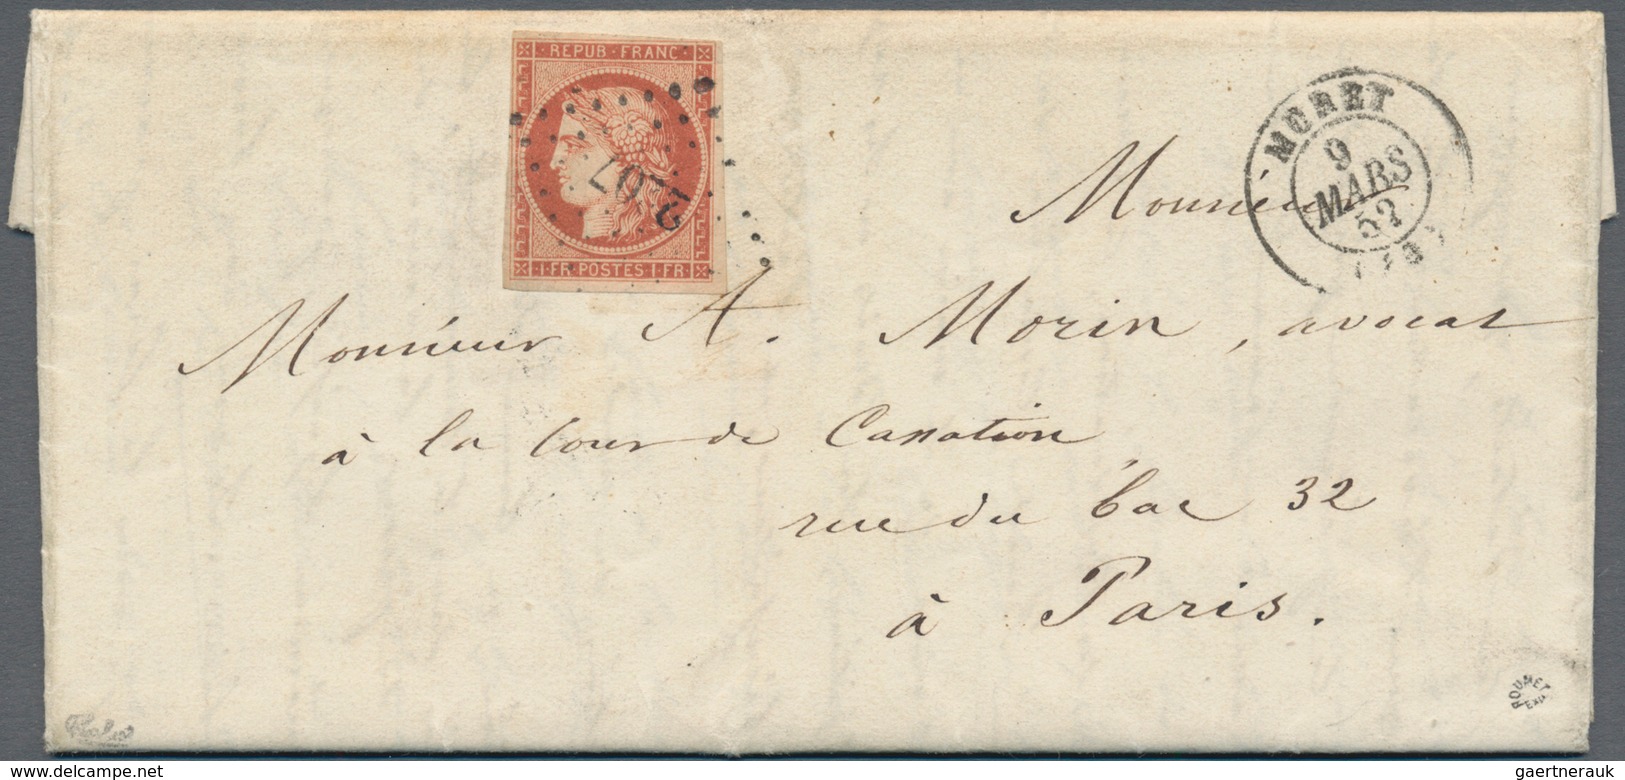 REPUB · FRANC ·
· 1 · FR · POSTES 1 · FR ·
MORET
9
MARS
52
Monsieur
Monsieur A. Morin, avocat
à la Cour de Cassation
rue du bac 32
à Paris.
ROUMET
EXP.
delcampe.net
gaertnerauk